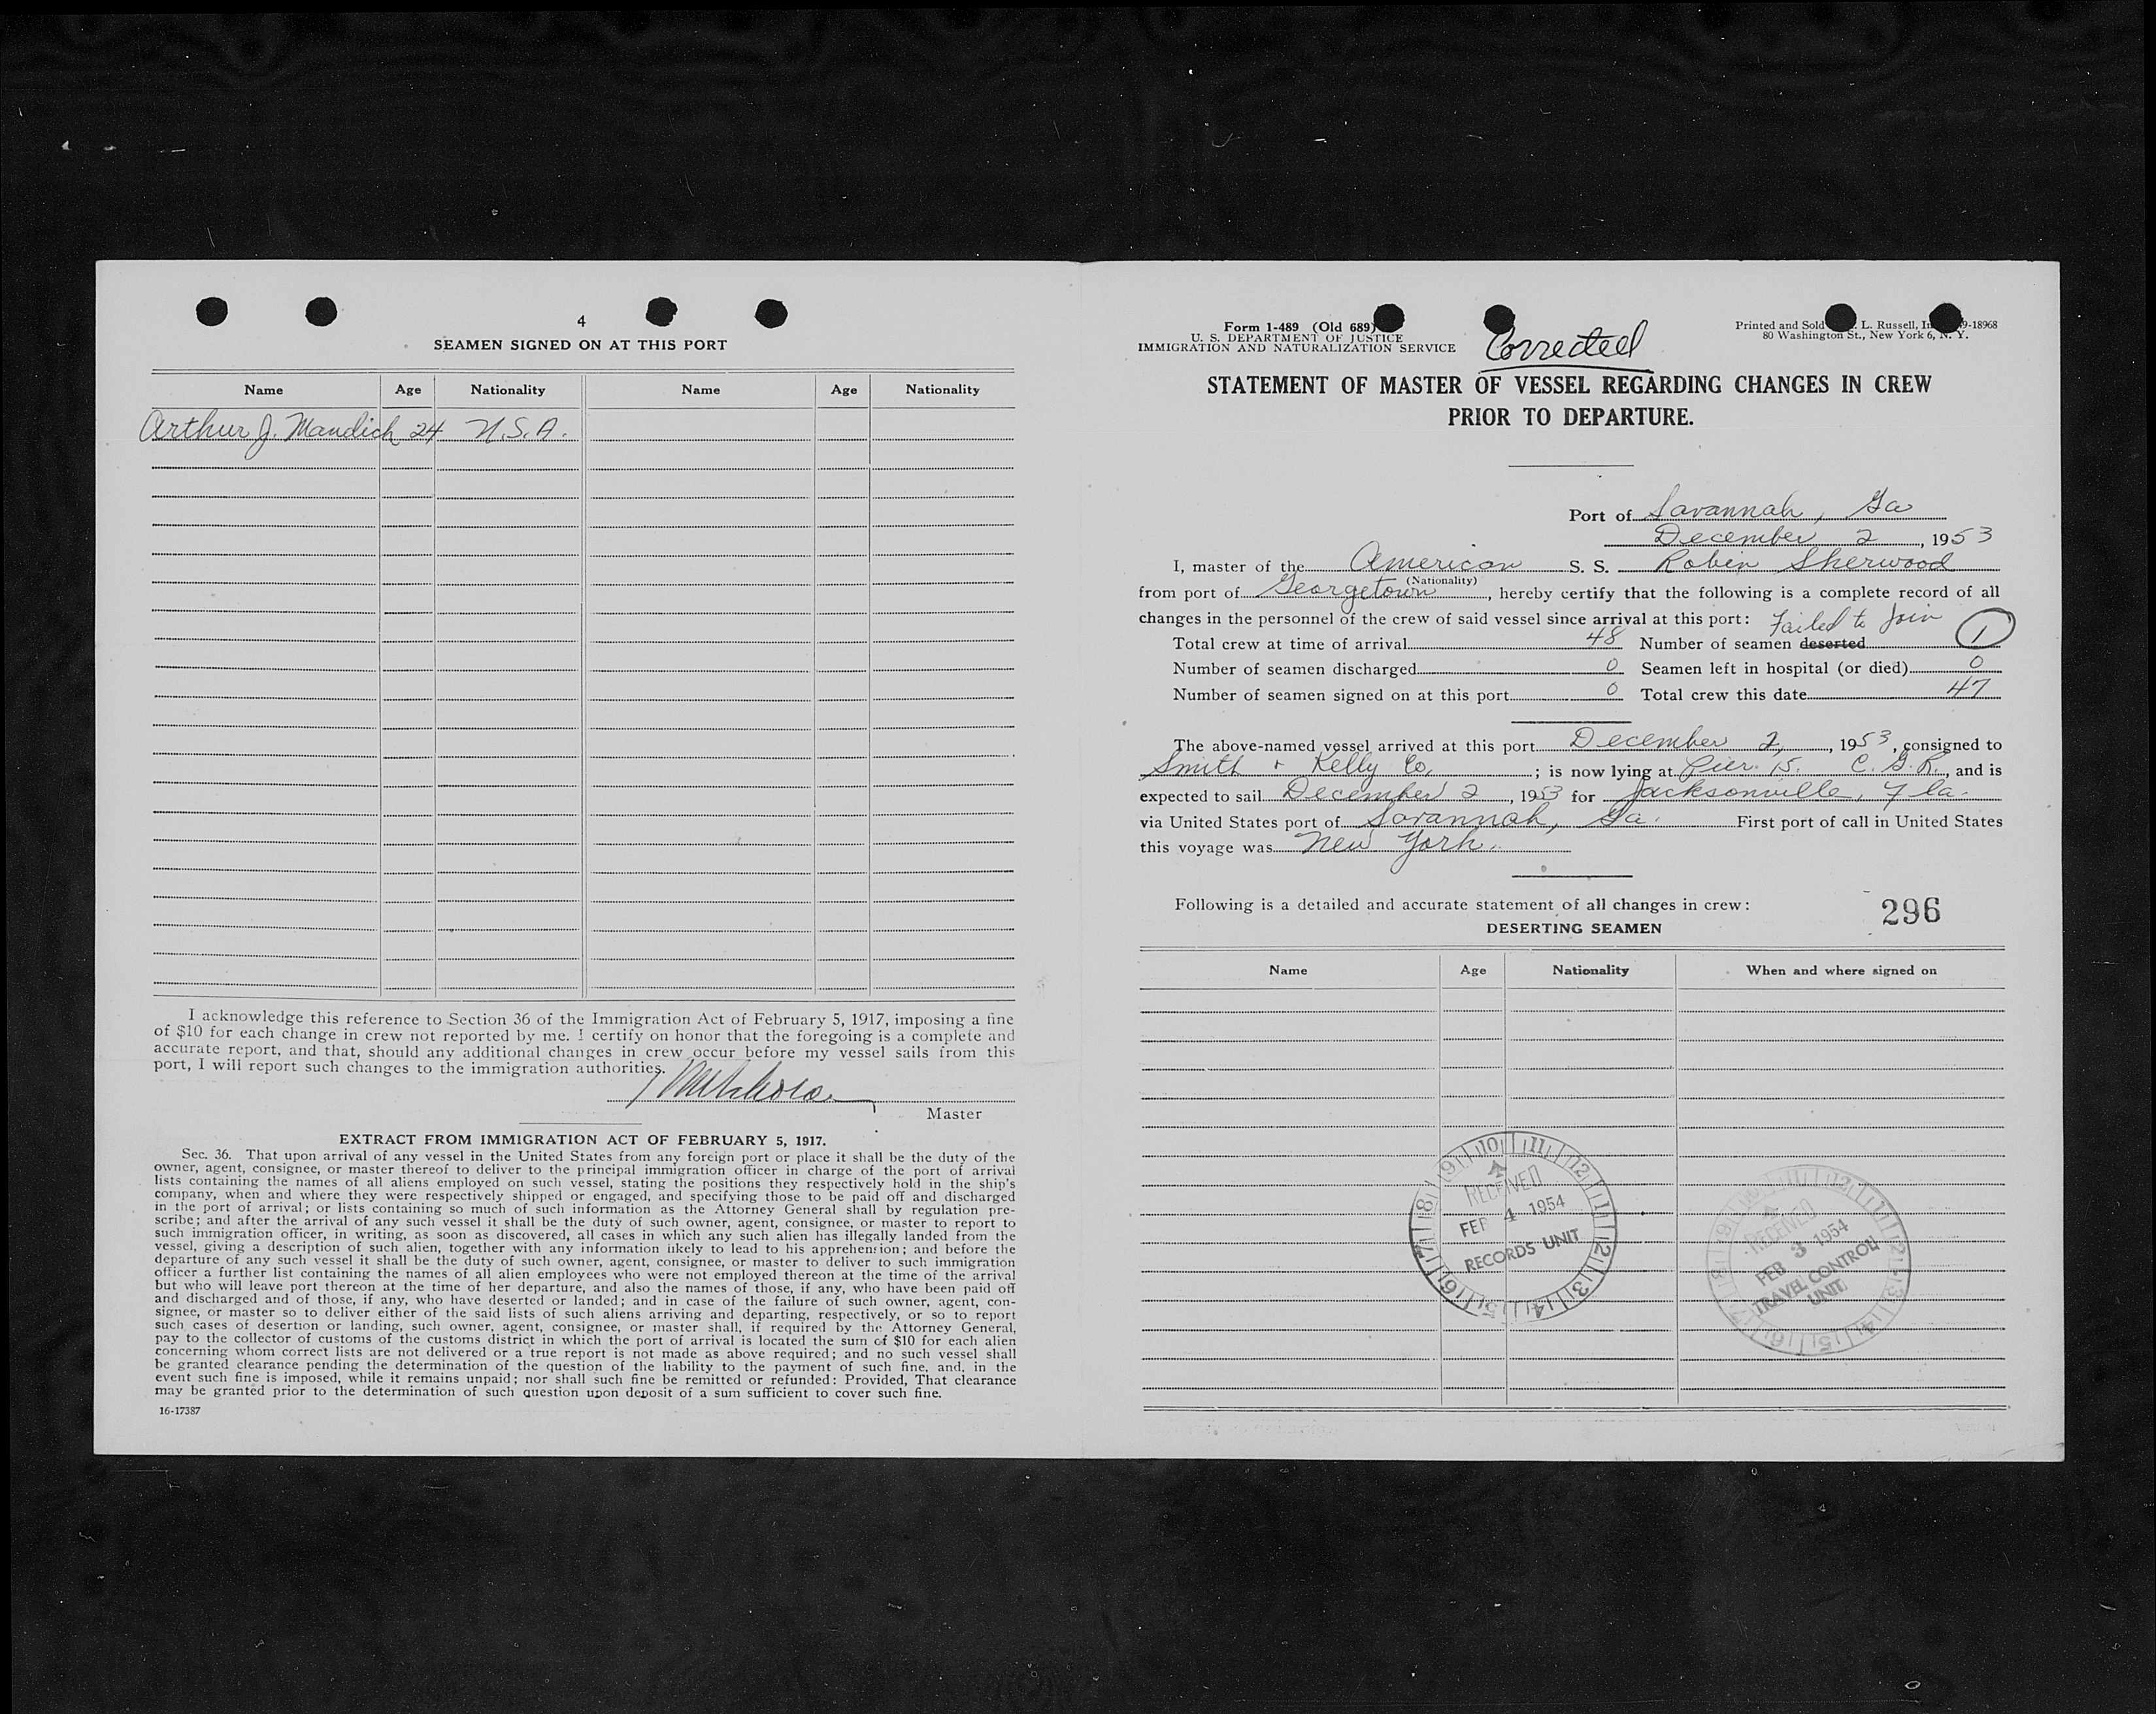 4
SEAMEN SIGNED ON AT THIS PORT
Name Age Nationality Name Age Nationality
Arthur J. Mandich 24 U.S.A.
I acknowledge this reference to Section 36 of the Immigration Act of February 5, 1917, imposing a fine
of $10 for each change in crew not reported by me. I certify on honor that the foregoing is a complete and
accurate report, and that, should any additional changes in crew occur before my vessel sails from this
port, I will report such changes to the immigration authorities.
Master
EXTRACT FROM IMMIGRATION ACT OF FEBRUARY 5, 1917.
Sec. 36. That upon arrival of any vessel in the United States from any foreign port or place it shall be the duty of the
owner, agent, consignee, or master thereof to deliver to the principal immigration officer in charge of the port of arrival
lists containing the names of all aliens employed on such vessel, stating the positions they respectively hold in the ship's
company, when and where they were respectively shipped or engaged, and specifying those to be paid off and discharged
in the port of arrival; or lists containing so much of such information as the Attorney General shall by regulation pre-
scribe; and after the arrival of any such vessel it shall be the duty of such owner, agent, consignee, or master to report to
such immigration officer, in writing, as soon as discovered, all cases in which any such alien has illegally landed from the
vessel, giving a description of such alien, together with any information likely to lead to his apprehension; and before the
departure of any such vessel it shall be the duty of such owner, agent, consignee, or master to deliver to such immigration
officer a further list containing the names of all alien employees who were not employed thereon at the time of the arrival
but who will leave port thereon at the time of her departure, and also the names of those, if any, who have been paid off
and discharged and of those, if any, who have deserted or landed; and in case of the failure of such owner, agent, con-
signee, or master so to deliver either of the said lists of such aliens arriving and departing, respectively, or so to report
such cases of desertion or landing, such owner, agent, consignee, or master shall, if required by the Attorney General,
pay to the collector of customs of the customs district in which the port of arrival is located the sum of $10 for each alien
concerning whom correct lists are not delivered or a true report is not made as above required; and no such vessel shall
be granted clearance pending the determination of the question of the liability to the payment of such fine, and, in the
event such fine is imposed, while it remains unpaid; nor shall such fine be remitted or refunded: Provided, That clearance
may be granted prior to the determination of such question upon deposit of a sum sufficient to cover such fine.
16-17387
Form 1-489 (Old 689)
U. S. DEPARTMENT OF JUSTICE
IMMIGRATION AND NATURALIZATION SERVICE
Corrected
Printed and Sold L. Russell, 9-18968
80 Washington St., New York 6, N. Y.
STATEMENT OF MASTER OF VESSEL REGARDING CHANGES IN CREW
PRIOR TO DEPARTURE.
Port of Savannah, Ga
December 2, 1953
I, master of the American S. S. Robin Sherwood
(Nationality)
from port of Georgetown, hereby certify that the following is a complete record of all
changes in the personnel of the crew of said vessel since arrival at this port: Failed to Join
Total crew at time of arrival 48 Number of seamen deserted 1
Number of seamen discharged 0 Seamen left in hospital (or died) 0
Number of seamen signed on at this port 0 Total crew this date 47
The above-named vessel arrived at this port December 2, 1953, consigned to
Smith + Kelly Co. ; is now lying at Pier 15. C. G. R., and is
expected to sail December 2, 1953 for Jacksonville, Fla.
via United States port of Savannah, Ga. First port of call in United States
this voyage was New York.
Following is a detailed and accurate statement of all changes in crew:
296
DESERTING SEAMEN
Name Age Nationality When and where signed on
RECEIVED
FEB 4 1954
RECORDS UNIT
RECEIVED
FEB 3 1954
TRAVEL CONTROL
UNIT